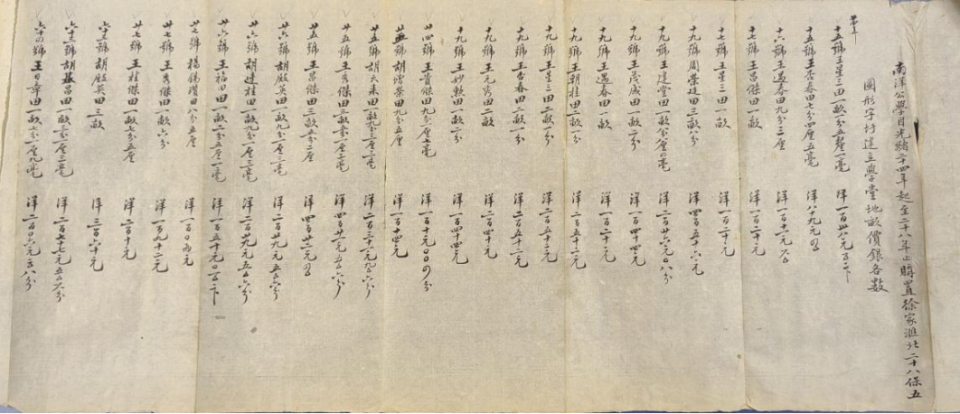 南洋公學自光緒二十四年起至二十八年止購置徐家滙北二十八保五
圖形字圩建立學堂地畝價銀各數
十五號王杏春田七分四厘五毫 洋八十九元
十六號王遇春田九分三厘 洋一百十一元六
十七號王昌傑田一畝 洋一百二十元
十七號王星三田一畝 洋一百二十元
十九號周榮廷田三畝八分 洋四百五十六元
十九號王建堂田一畝 洋二百廿六元〇八分
十九號王茂成田一畝二分 洋一百四十四元
十九號王遇春田一畝 洋一百二十元
十九號王胡桂田二畝一分 洋二百五十二元
十九號王杏春田二畝一分 洋二百五十二元
十九號王星三田二畝一分 洋二百五十二元
十九號王元秀田二畝 洋二百四十元
十九號王妙歎田一畝二分 洋一百四十四元
廿四號王貴傑田九分 洋一百十元〇四分
廿五號胡增榮田九分五厘 洋一百十四元
廿五號胡天來田一畝九分三厘三毫 洋二百三十一元九角六分
廿五號王秀傑田 洋四百廿一元五角六分
廿五號王昌傑田三畝五分二厘 洋四百廿二元
廿六號胡殿英田一畝九分一厘三毫 洋二百廿九元五角六分
廿六號胡建桂田一畝九分一厘三毫 洋二百廿九元五角六分
廿六號王福田田一畝二分五厘一毫 洋一百五十元
廿七號楊錫增田 分五厘 洋一百〇 元
廿七號王秀傑田一畝六分 洋一百九十二元
廿七號王桂傑田一畝七分五厘 洋二百十元
六十三號胡殿英田三畝 洋三百六十元
六十三號胡基昌田二畝三分一厘三毫 洋二百七十七元五角六分
六十四號王日章田一畝七分一厘九毫 洋二百〇六元 八分